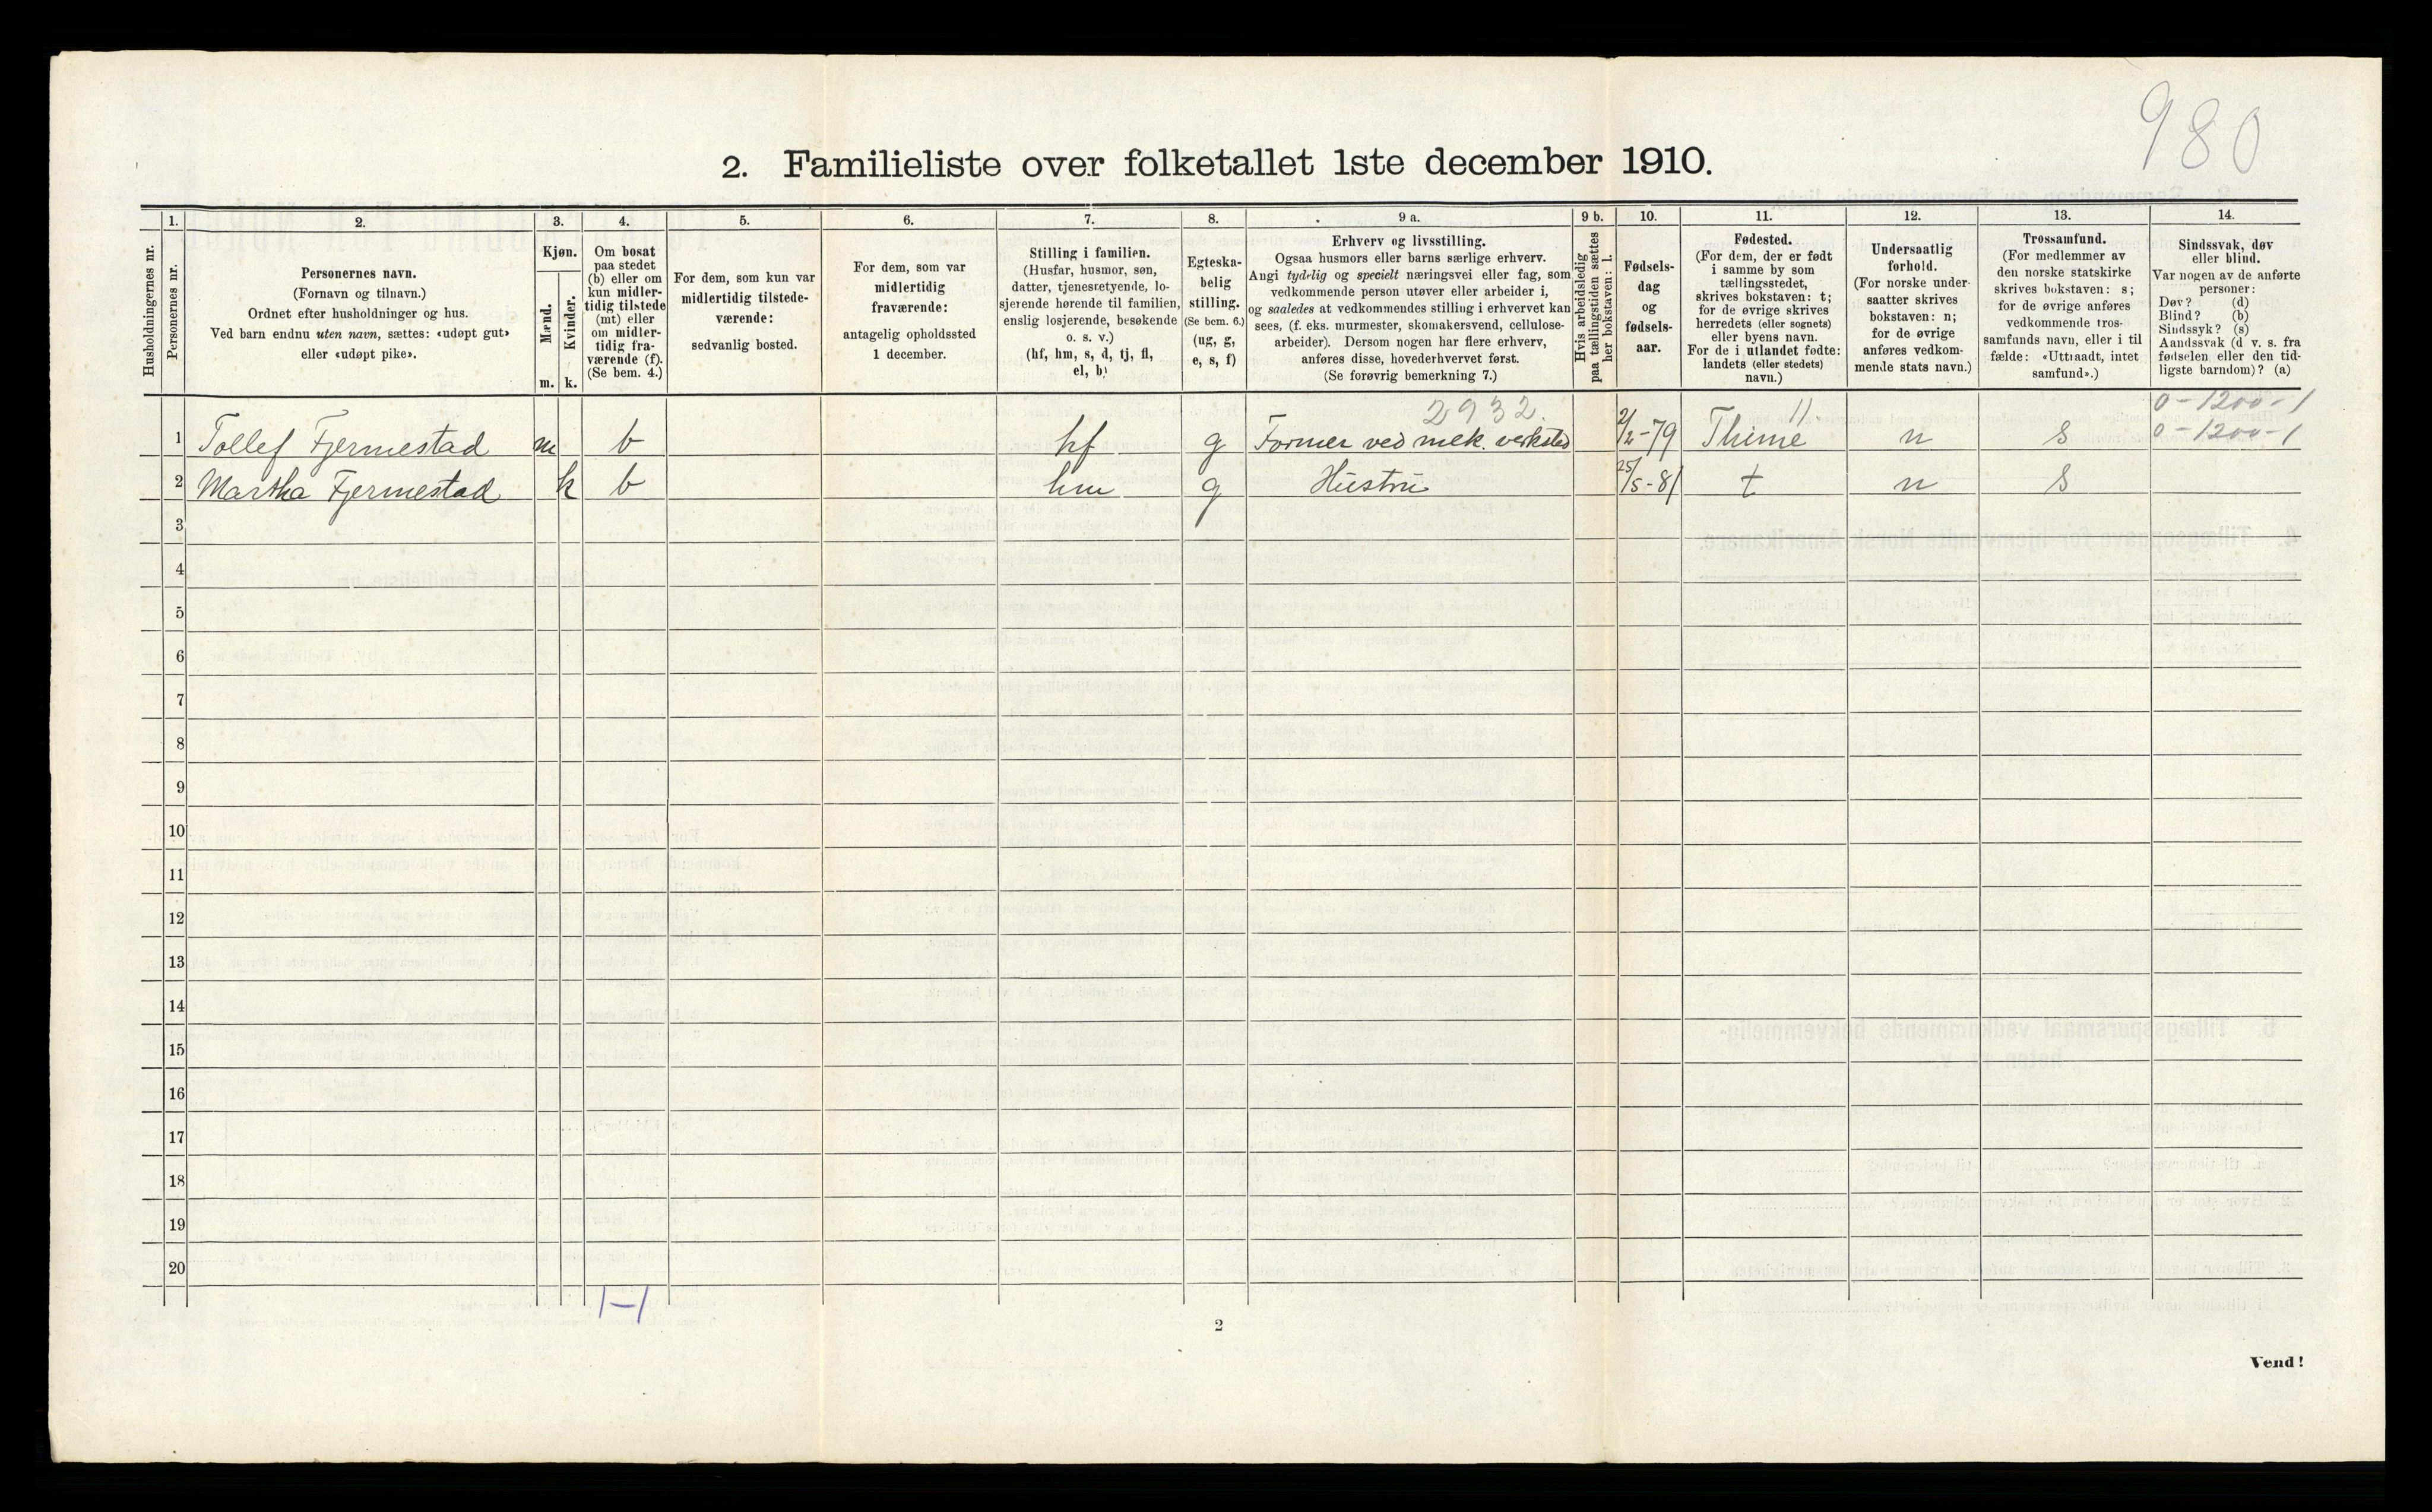 980
2. Familieliste over folketallet 1ste december 1910.
Husholdningernes nr.
1.
Personernes nr.
2.
Personernes navn.
(Fornavn og tilnavn.)
Ordnet efter husholdninger og hus.
Ved barn endnu uten navn, sættes: «udøpt gut»
eller «udøpt pike».
3.
Kjøn.
Mænd.
Kvinder.
m.
k.
4.
Om bosat
paa stedet
(b) eller om
kun midler-
tidig tilstede
(mt) eller
om midler-
tidig fra-
værende (f).
(Se bem. 4.)
5.
For dem, som kun var
midlertidig tilstede-
værende:
sedvanlig bosted.
6.
For dem, som var
midlertidig
fraværende:
antagelig opholdssted
1 december.
7.
Stilling i familien.
(Husfar, husmor, søn,
datter, tjenestetyende, lo-
sjerende hørende til familien,
enslig losjerende, besøkende
o. s. v.)
(hf, hm, s, d, tj, fl,
el, b)
8.
Egteska-
belig
stilling.
(Se bem. 6.)
(ug, g,
e, s, f)
9 a.
Erhverv og livsstilling.
Ogsaa husmors eller barns særlige erhverv.
Angi tydelig og specielt næringsvei eller fag, som
vedkommende person utøver eller arbeider i,
og saaledes at vedkommendes stilling i erhvervet kan
sees, (f. eks. murmester, skomakersvend, cellulose-
arbeider). Dersom nogen har flere erhverv,
anføres disse, hovederhvervet først.
(Se forøvrig bemerkning 7.)
9 b.
Hvis arbeidsledig
paa tællingstiden sættes
her bokstaven: l.
10.
Fødsels-
dag
og
fødsels-
aar.
11.
Fødested.
(For dem, der er født
i samme by som
tællingsstedet,
skrives bokstaven: t;
for de øvrige skrives
herredets (eller sognets)
eller byens navn.
For de i utlandet fødte:
landets (eller stedets)
navn.)
12.
Undersaatlig
forhold.
(For norske under-
saatter skrives
bokstaven: n;
for de øvrige
anføres vedkom-
mende stats navn.)
13.
Trossamfund.
(For medlemmer av
den norske statskirke
skrives bokstaven: s;
for de øvrige anføres
vedkommende tros-
samfunds navn, eller i til
fælde: «Uttraadt, intet
samfund».)
14.
Sindssvak, døv
eller blind.
Var nogen av de anførte
personer:
Døv? (d)
Blind? (b)
Sindssyk? (s)
Aandssvak (d. v. s. fra
fødselen eller den tid-
ligste barndom)? (a)
2932. 11. 0-1200-1
1 Tollef Fjermestad m b hf g Former ved mek. verksted 2/2-79 Thime n s 0-1200-1
2 Martha Fjermestad k b hm g Hustru 25/5-81 t n s
3
4
5
6
7
8
9
10
11
12
13
14
15
16
17
18
19
20
1-1
2
Vend!